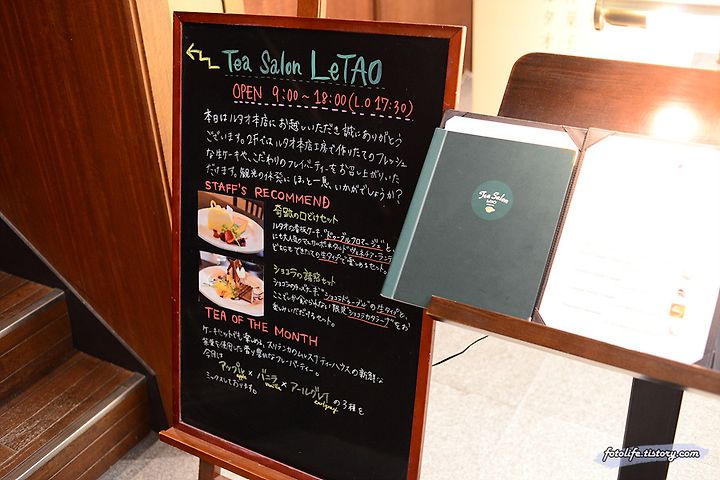 Tea Salon LeTAO
OPEN 9:00~18:00(L.O 17:30)
本日はルタオ本店にお越しいただき誠にありがとう
ございます。2Fではルタオ本店工房で作りたてのフレッシュ
な生ケーキや、こだわりのフレーバーティーをお召し上がりいた
だけます。観光の休憩にほっと一息、いかがでしょうか?
STAFF'S RECOMMEND
奇跡の口どけセット
ルタオの看板ケーキ、"ドゥーブルフロマージュ"と、
どちらもできたての生タイプで楽しめるセット。
ショコラの誘惑セット
"ショコラドゥーブル"の生タイプと、
ここでしか食べられない限定
楽しみいただけるセット。
TEA OF THE MONTH
ケーキセットでも楽しめる、スリランカのムレスナティーハウスの新鮮な
茶葉を使用した香り豊かなフレーバーティー。
今月は
アップル × バニラ × アールグレイ の3種を
apple vanilla earlgrey
ミックスしております。
Tea Salon
LeTAO
fotolife.tistory.com